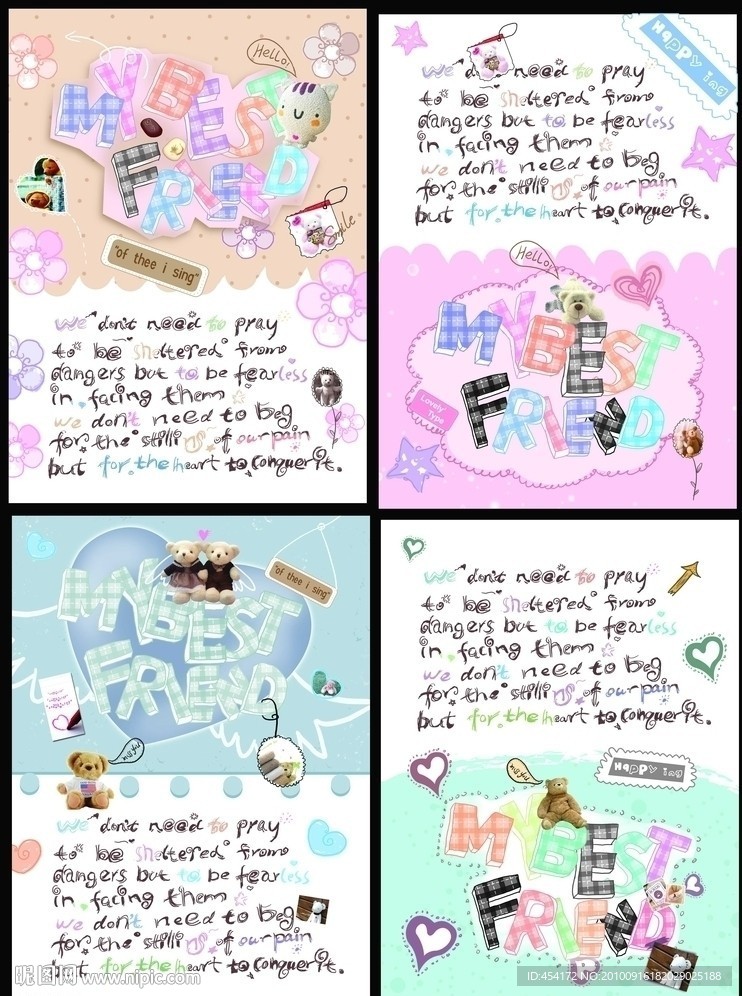 Hello!
MY BEST
FRIEND
Smile
"of thee i sing"
we don't need to pray
to be sheltered from
dangers but to be fearless
in facing them
we don't need to beg
for the still ing of our pain
but for the heart to conquer it.
HAPPY ing
we don't need to pray
to be sheltered from
dangers but to be fearless
in facing them
we don't need to beg
for the still ing of our pain
but for the heart to conquer it.
Hello!
MY BEST
FRIEND
Lovely
Type
"of thee i sing"
MY BEST
FRIEND
we don't need to pray
to be sheltered from
dangers but to be fearless
in facing them
we don't need to beg
for the still ing of our pain
but for the heart to conquer it.
昵图网 www.nipic.com
we don't need to pray
to be sheltered from
dangers but to be fearless
in facing them
we don't need to beg
for the still ing of our pain
but for the heart to conquer it.
HAPPY ing
MY BEST
FRIEND
ID:454172 NO:20100916182029025188